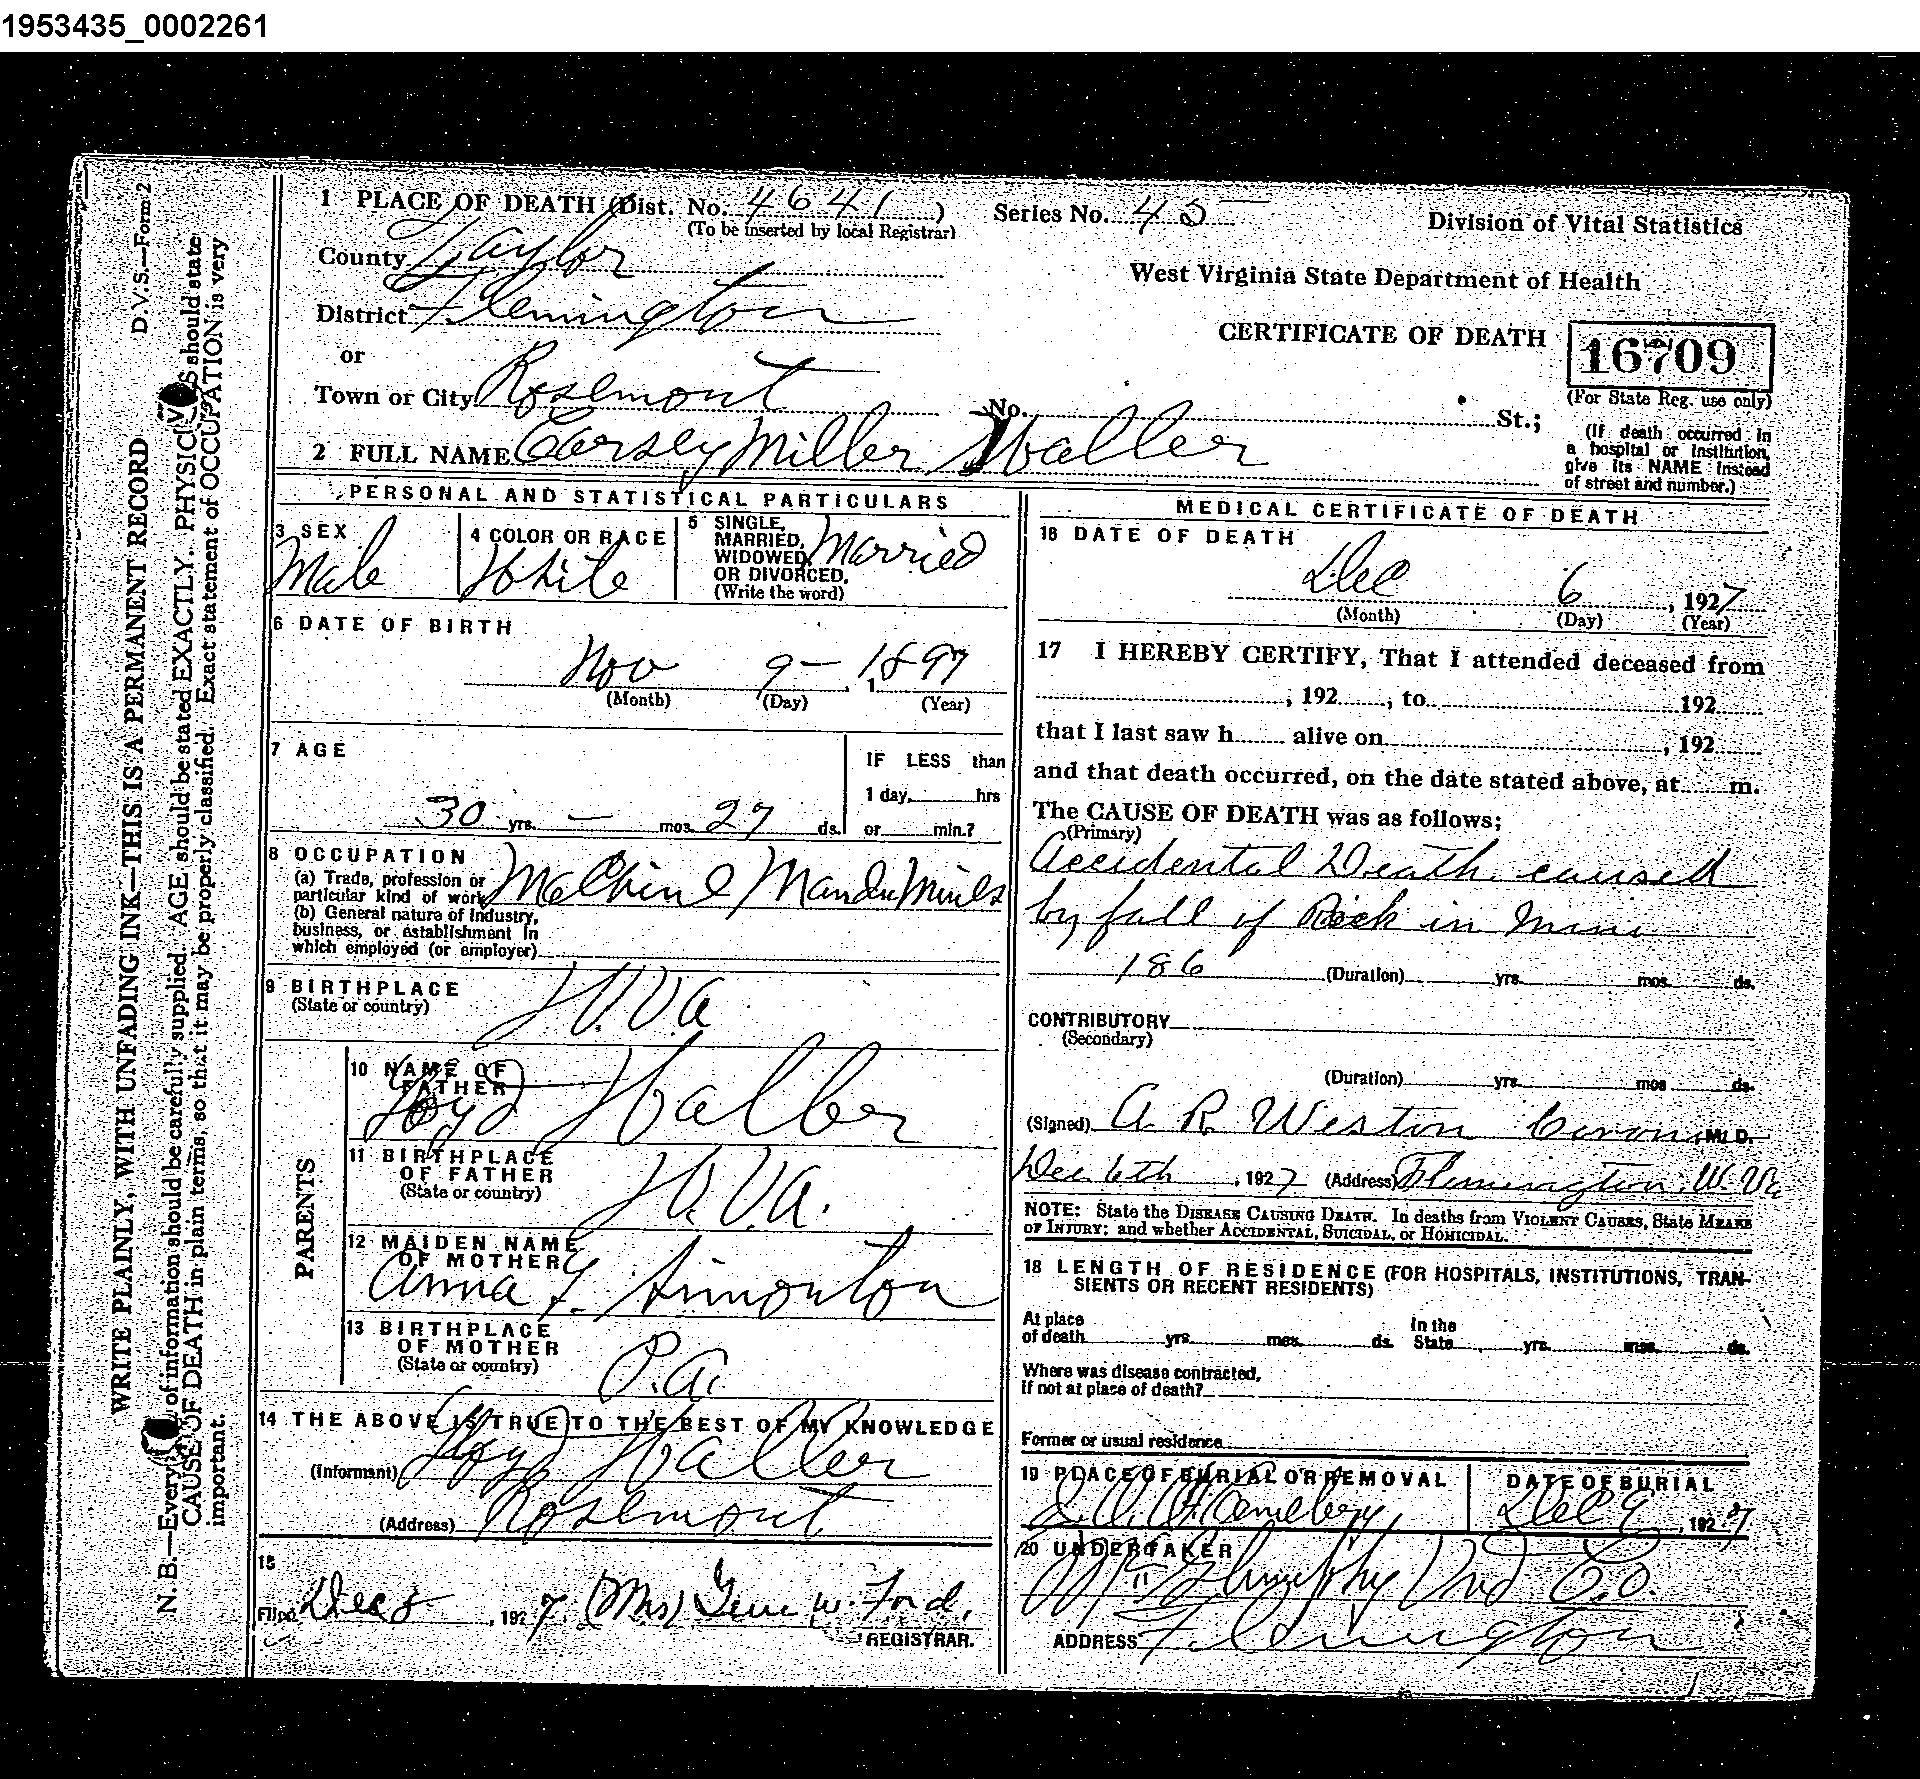 1953435_0002261
D.V.S.—Form 2
WRITE PLAINLY, WITH UNFADING INK—THIS IS A PERMANENT RECORD
N. B.—Every of information should be carefully supplied. AGE should be stated EXACTLY. PHYSIC S should state
CAUSE OF DEATH in plain terms, so that it may be properly classified. Exact statement of OCCUPATION is very
important.
1 PLACE OF DEATH (Dist. No. 4641) Series No. 45
(To be inserted by local Registrar)
Division of Vital Statistics
County Taylor
West Virginia State Department of Health
District Flemington
CERTIFICATE OF DEATH 16709
or
(For State Reg. use only)
Town or City Rosemont No. St.;
(If death occurred in
a hospital or institution,
give its NAME instead
of street and number.)
2 FULL NAME Miller Waller
PERSONAL AND STATISTICAL PARTICULARS
3 SEX
Male
4 COLOR OR RACE
White
5 SINGLE,
MARRIED,
WIDOWED,
OR DIVORCED.
(Write the word)
Married
6 DATE OF BIRTH
Nov 9 — 1897
(Month) (Day) (Year)
7 AGE
30 yrs. — mos. 27 ds.
IF LESS than
1 day, hrs
or min.?
8 OCCUPATION
(a) Trade, profession or
particular kind of work
(b) General nature of industry,
business, or establishment in
which employed (or employer)
9 BIRTHPLACE
(State or country)
W.Va
PARENTS
10 NAME OF
FATHER
Waller
11 BIRTHPLACE
OF FATHER
(State or country)
W.Va.
12 MAIDEN NAME
OF MOTHER
Anna Simonton
13 BIRTHPLACE
OF MOTHER
(State or country)
P.a.
14 THE ABOVE IS TRUE TO THE BEST OF MY KNOWLEDGE
(Informant) Waller
(Address) Rosemont
15
Filed Dec 8, 1927. (Mrs) W. Ford,
REGISTRAR.
MEDICAL CERTIFICATE OF DEATH
16 DATE OF DEATH
Dec 6, 1927
(Month) (Day) (Year)
17 I HEREBY CERTIFY, That I attended deceased from
, 192 , to 192
that I last saw h alive on , 192
and that death occurred, on the date stated above, at m.
The CAUSE OF DEATH was as follows;
(Primary)
Accidental Death caused
by fall of Rock in Mine
186 (Duration) yrs. mos. ds.
CONTRIBUTORY
(Secondary)
(Duration) yrs. mos. ds.
(Signed) A. R. Weston Coroner M. D.
Dec 6th, 1927 (Address) Flemington, W. Va
NOTE: State the DISEASE CAUSING DEATH. In deaths from VIOLENT CAUSES, State MEANS
OF INJURY; and whether ACCIDENTAL, SUICIDAL, or HOMICIDAL.
18 LENGTH OF RESIDENCE (FOR HOSPITALS, INSTITUTIONS, TRAN-
SIENTS OR RECENT RESIDENTS)
At place
of death yrs. mos. ds.
In the
State yrs. mos. ds.
Where was disease contracted,
if not at place of death?
Former or usual residence
19 PLACE OF BURIAL OR REMOVAL
Cemetery
DATE OF BURIAL
Dec 9, 1927
20 UNDERTAKER
Und Co.
ADDRESS Flemington